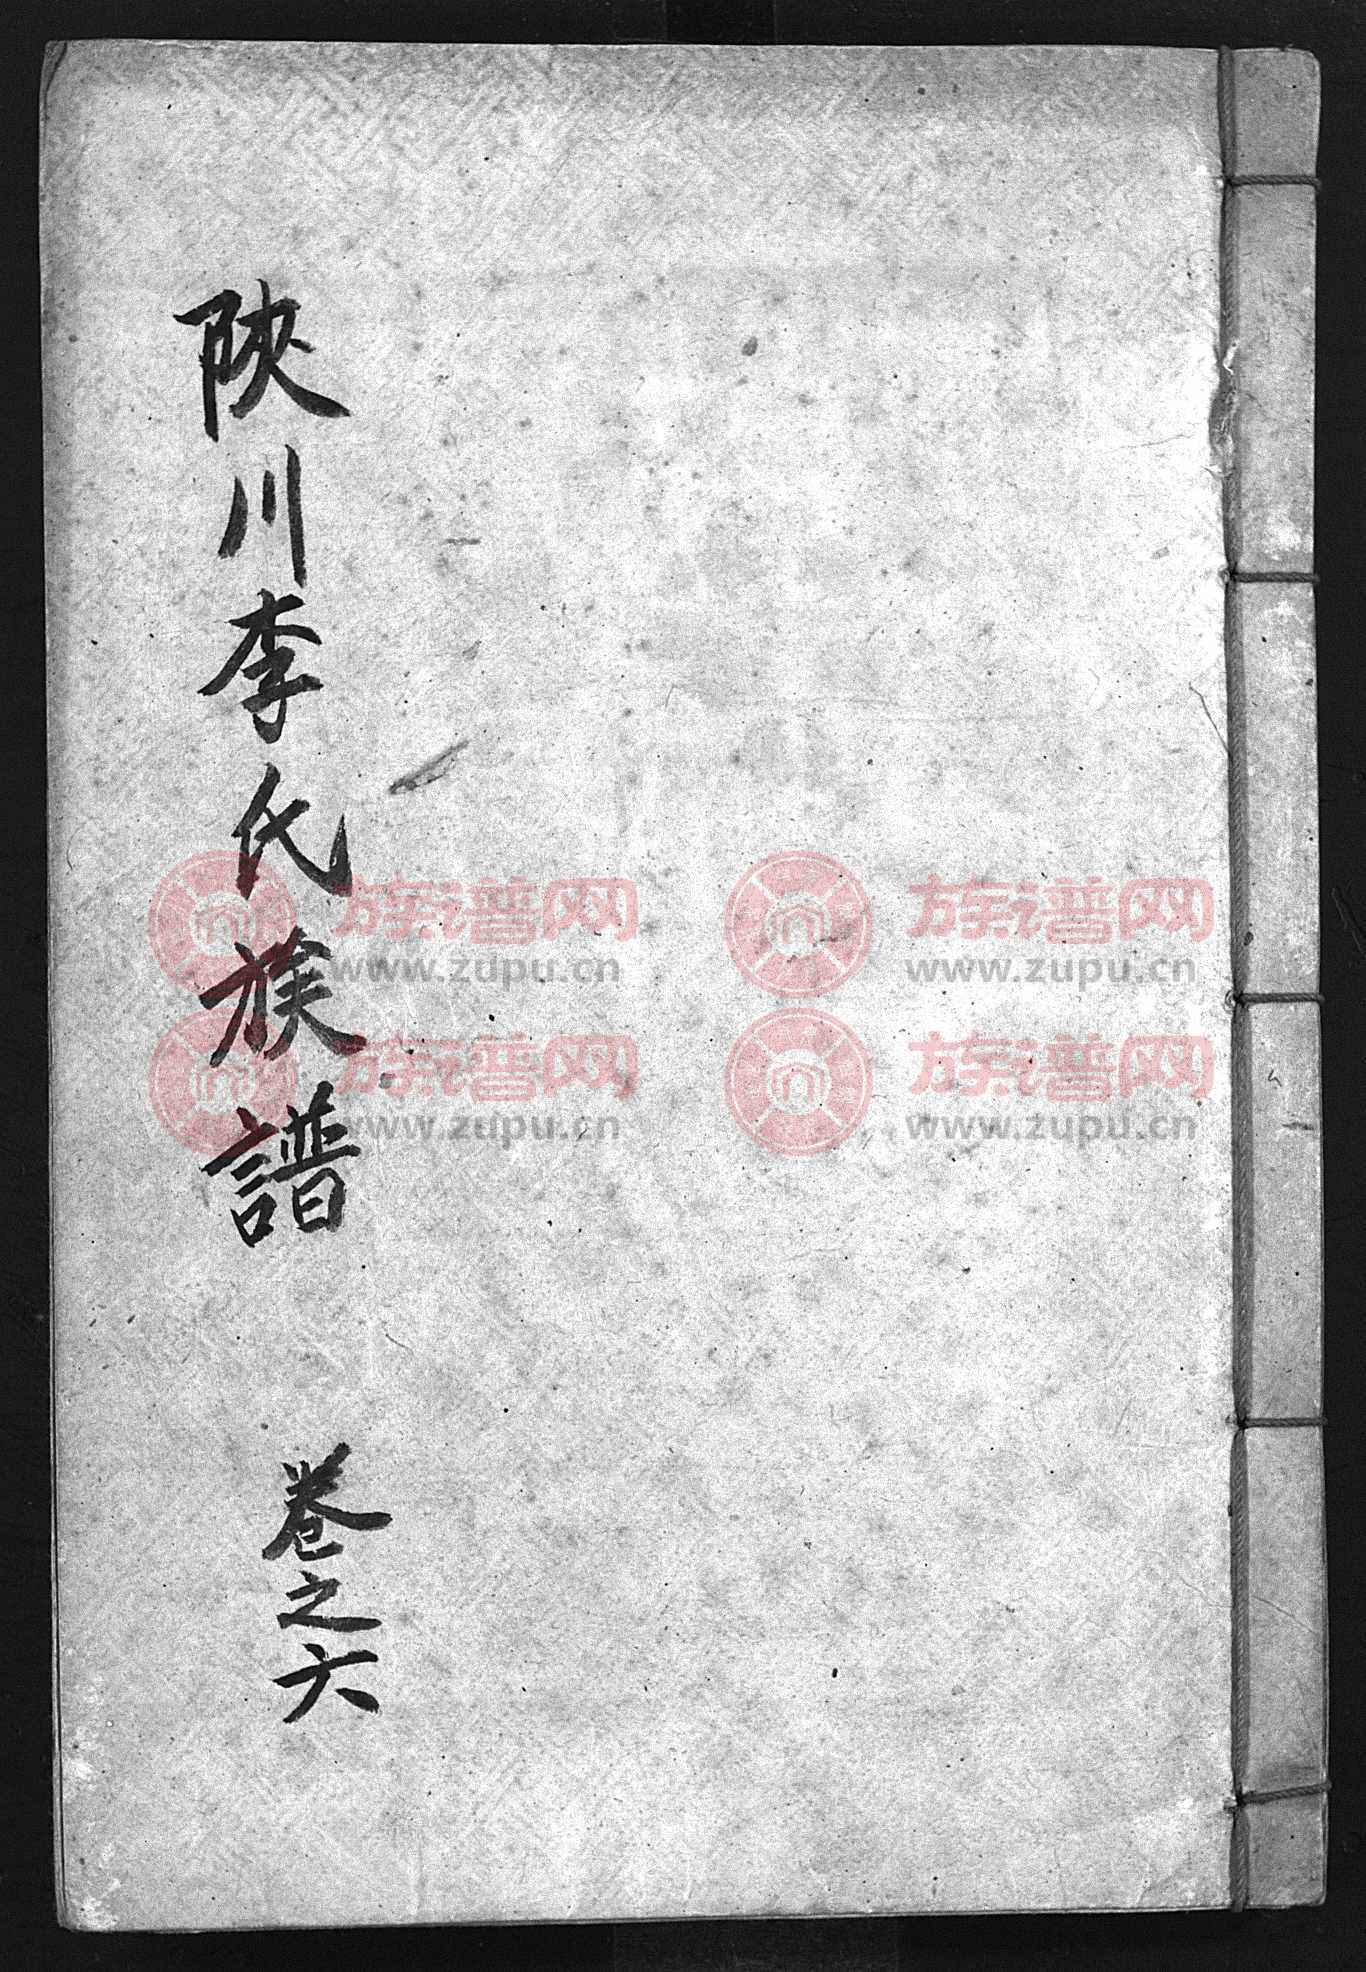 陝川李氏族譜
卷之六
族谱网
www.zupu.cn
族谱网
www.zupu.cn
族谱网
www.zupu.cn
族谱网
www.zupu.cn